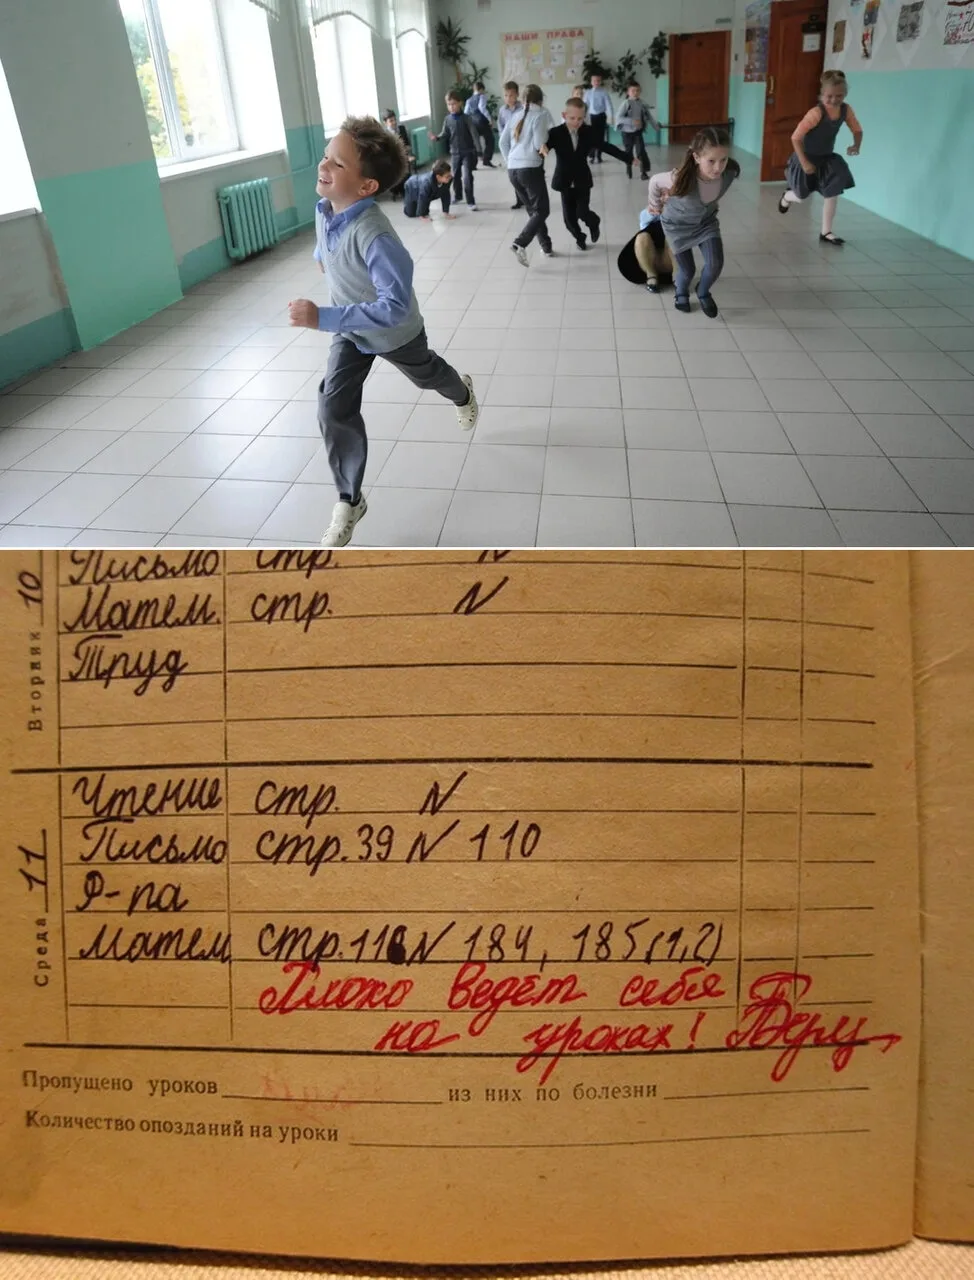 НАШИ ПРАВА
Вторник 10
Письмо стр. №
Матем. стр. №
Труд
Среда 11
Чтение стр. №
Письмо стр. 39 № 110
Р-ра
Матем стр. 116 № 184, 185 (1,2)
Плохо ведёт себя
на уроках!
Пропущено уроков из них по болезни
Количество опозданий на уроки